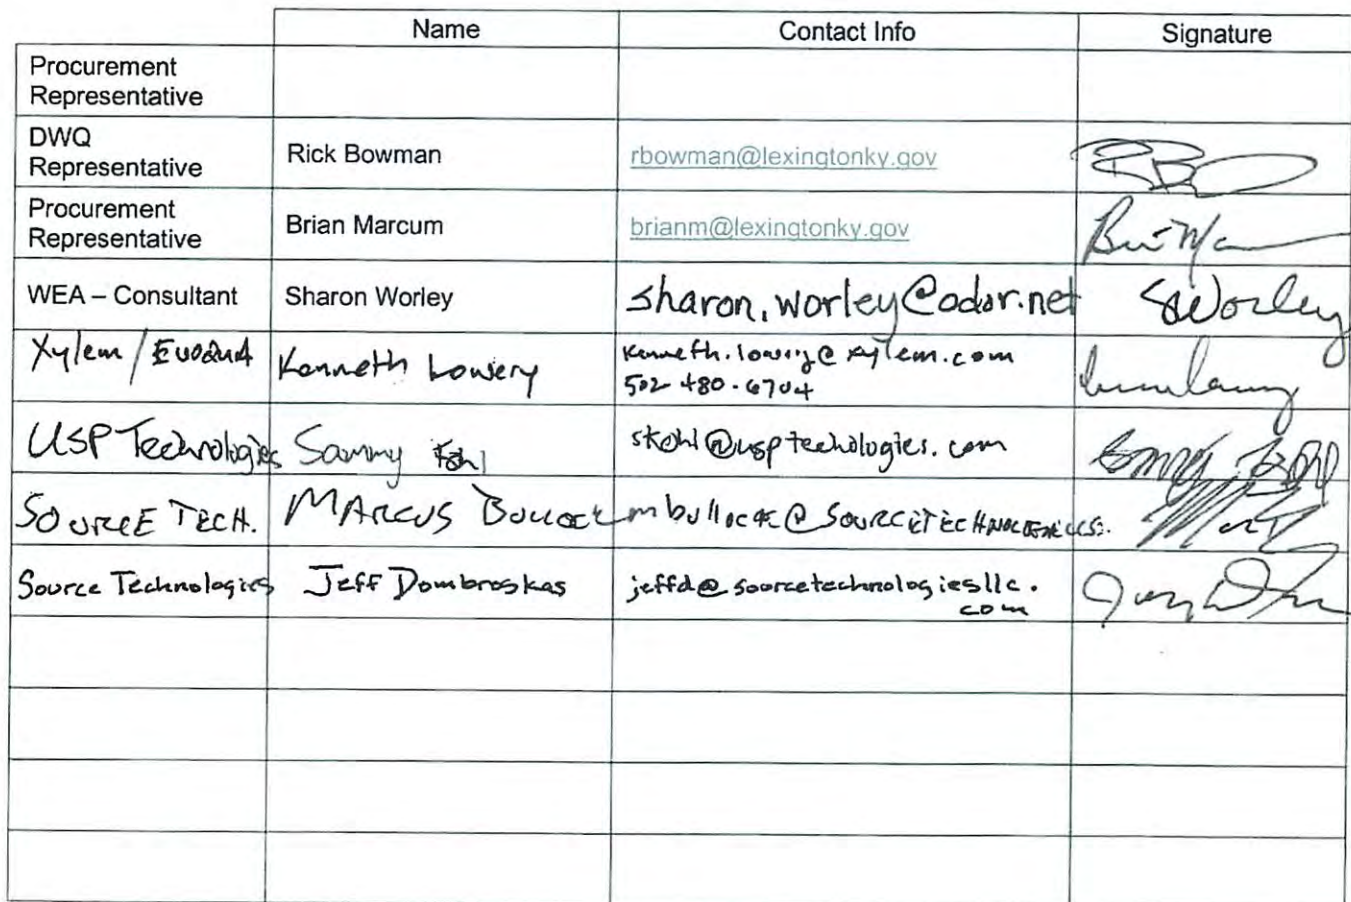 Name Contact Info Signature
Procurement
Representative
DWQ
Representative
Rick Bowman rbowman@lexingtonky.gov
Procurement
Representative
Brian Marcum brianm@lexingtonky.gov
WEA – Consultant Sharon Worley sharon.worley@odor.net SWorley
Xylem/Evoqua Kenneth Lowery kenneth.lowery@xylem.com
502 480-6704
USP Technologies Sammy skohl@usptechologies.com
SOURCE TECH. MARCUS BULLOCK mbullock@SOURCETECHNOLOGIES.
Source Technologies Jeff Dombroskas jeffd@sourcetechnologiesllc.
com